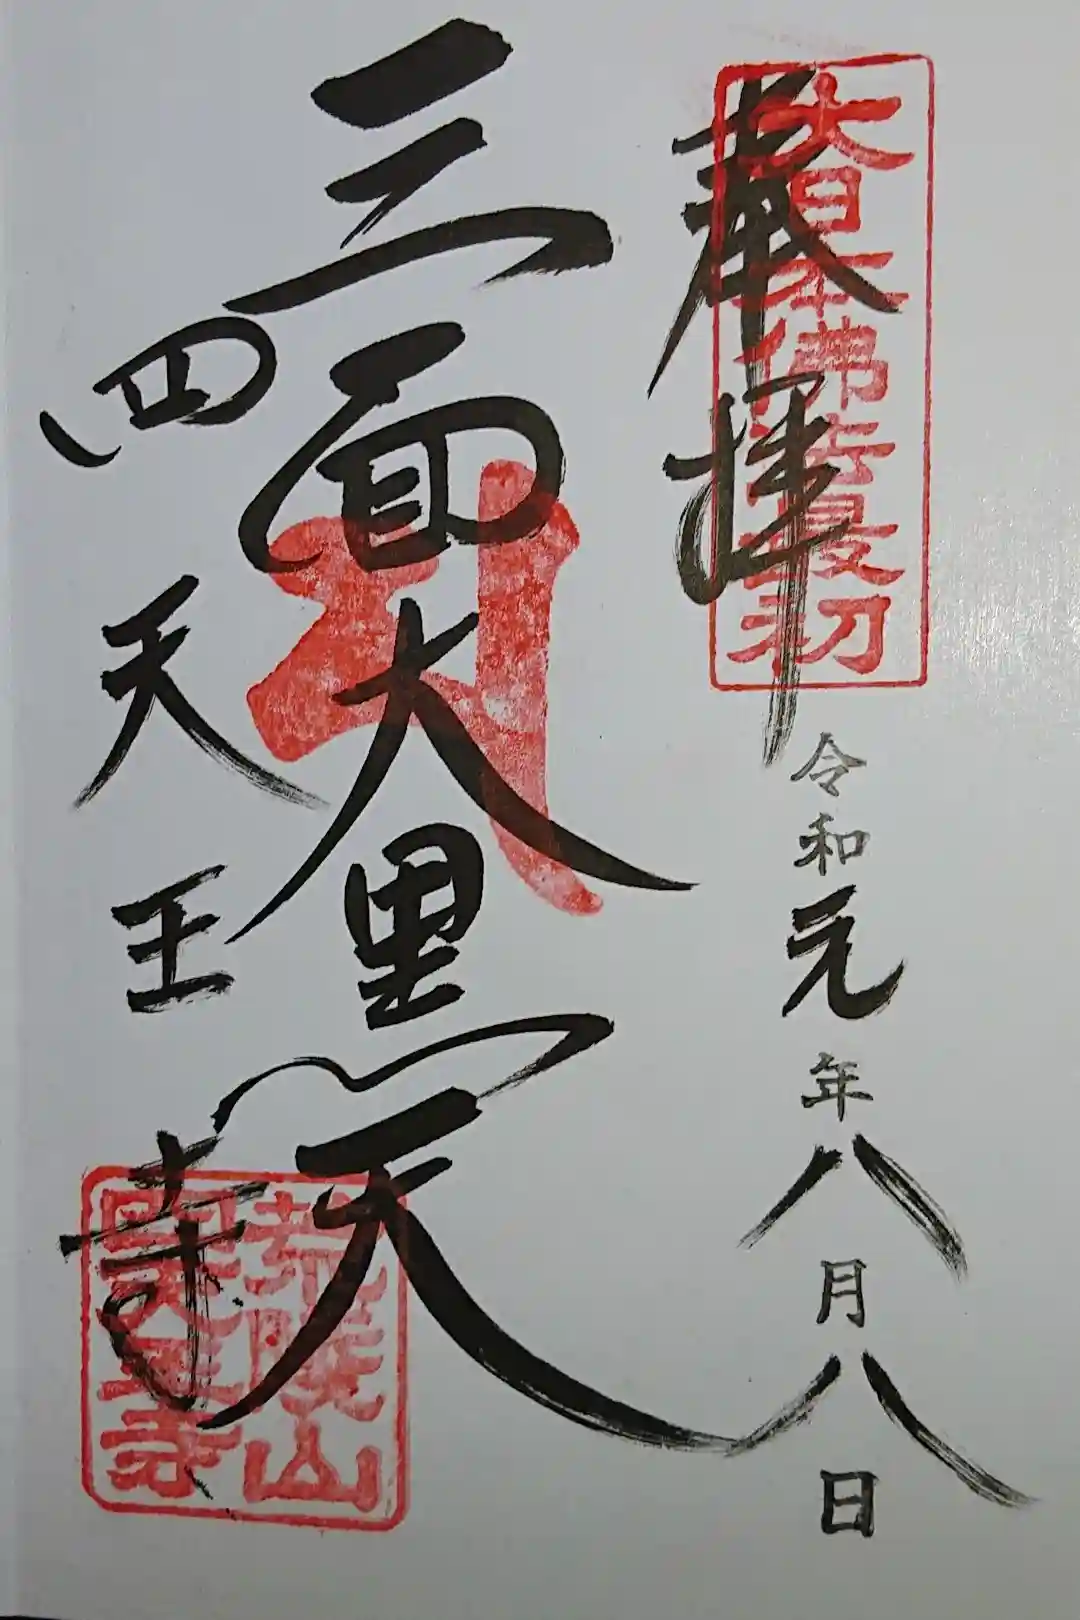 奉拝
大日本佛法最初
令和元年八月八日
三面大黒天
四天王寺
荒陵山
四天王寺